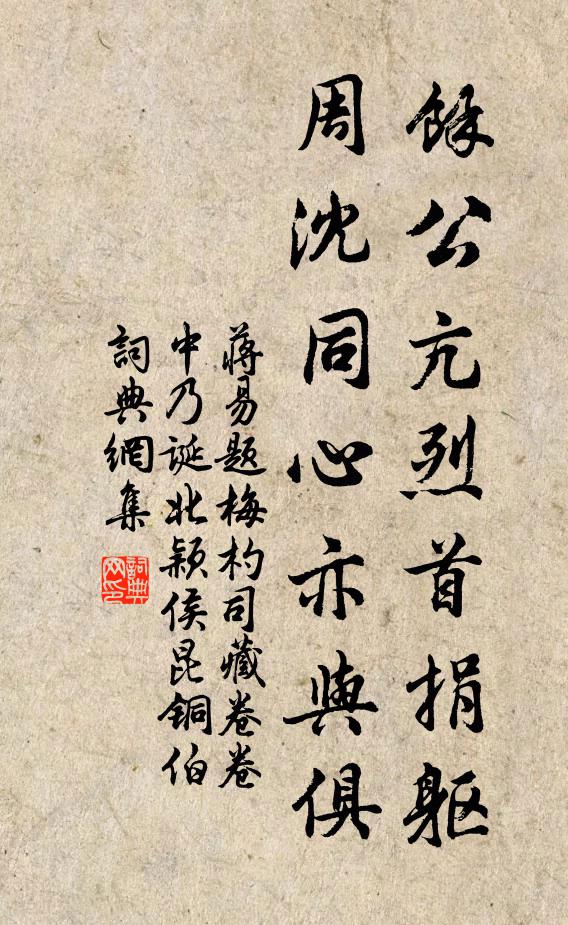 餘公亢烈首捐軀
周沈同心亦與俱
蔣易題梅杓司藏卷卷
中乃誕北颖侯昆銅伯
詞典網集
詞典
网印